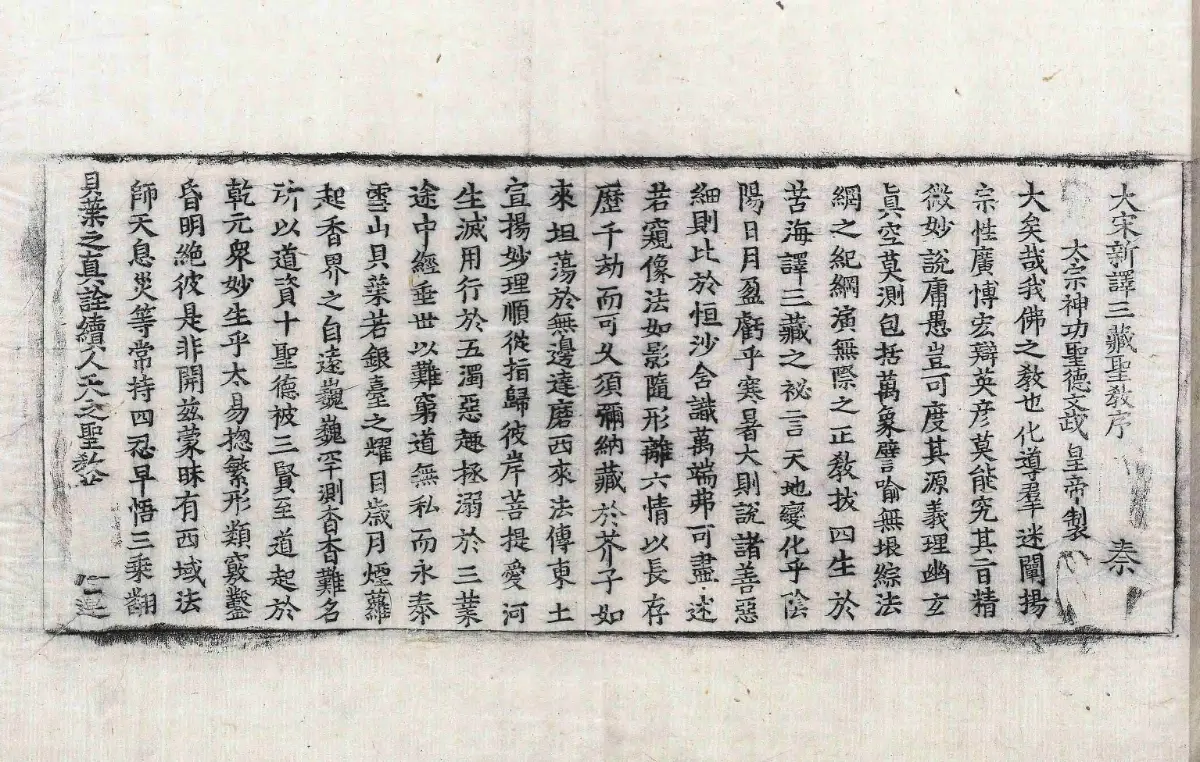 大宋新譯三藏聖敎序 秦
太宗神功聖德文武 皇帝製
大矣哉我佛之敎也化導羣迷闡揚
宗性廣博宏辯英彦莫能究其旨精
微妙說庸愚豈可度其源義理幽玄
眞空莫測包括萬象譬喻無垠綜法
網之紀綱演無際之正敎拔四生於
苦海譯三藏之祕言天地變化乎陰
陽日月盈虧乎寒暑大則說諸善惡
細則比於恒沙含識萬端弗可盡述
若窺像法如影隨形離六情以長存
歷千劫而可久須彌納藏於芥子如
來坦蕩於無邊達磨西來法傳東土
宣揚妙理順從指歸彼岸菩提愛河
生滅用行於五濁惡趣拯溺於三業
途中經垂世以難窮道無私而永泰
雪山貝葉若銀臺之耀目歲月煙蘿
起香界之自遠巍巍罕測杳杳難名
所以道資十聖德被三賢至道起於
乾元衆妙生乎太易揔繁形類竅鑿
昏明絶彼是非開玆蒙昧有西域法
師天息災等常持四忍早悟三乘翻
貝葉之真詮續人天之聖敎